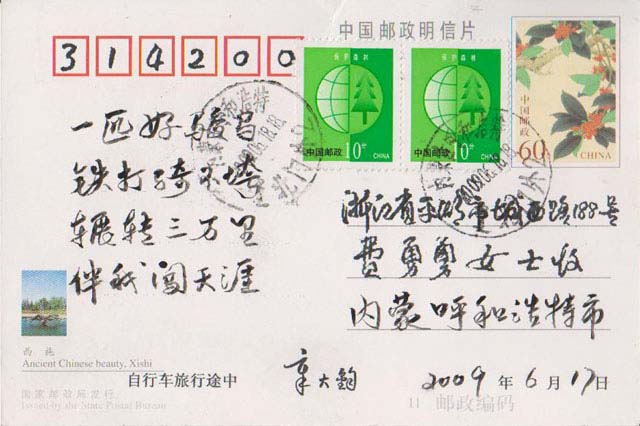 314200
中国邮政明信片
保护森林
中国邮政 10分
CHINA
保护森林
中国邮政 10分
CHINA
中国邮政
60分
CHINA
一匹好骏马
铁打骑不垮
辗转三万里
伴我闯天涯
浙江省平湖市城西路188号
费勇勇女士收
内蒙呼和浩特市
西施
Ancient Chinese beauty, Xishi
自行车旅行途中
章大钧
2009年6月17日
国家邮政局发行
Issued by the State Postal Bureau
邮政编码